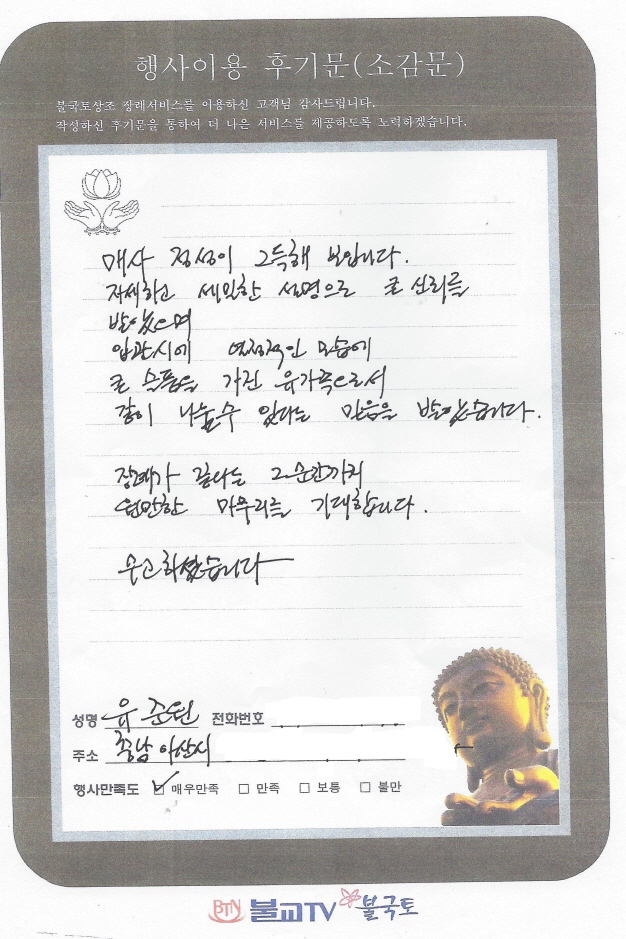 행사이용 후기문(소감문)
불국토상조 장례서비스를 이용하신 고객님 감사드립니다.
작성하신 후기문을 통하여 더 나은 서비스를 제공하도록 노력하겠습니다.
매사 정성이 그득해 보입니다.
자세하고 세밀한 설명으로 큰 신뢰를
받았으며
입관시에 열정적인 모습에
큰 슬픔을 가진 유가족으로서
같이 나눌수 있다는 믿음을 받았습니다.
장례가 끝나는 그순간까지
원만한 마무리를 기대합니다.
수고하셨습니다
성명 유준원 전화번호
주소 충남 아산시
행사만족도 매우만족 만족 보통 불만
BTN 불교TV 불국토